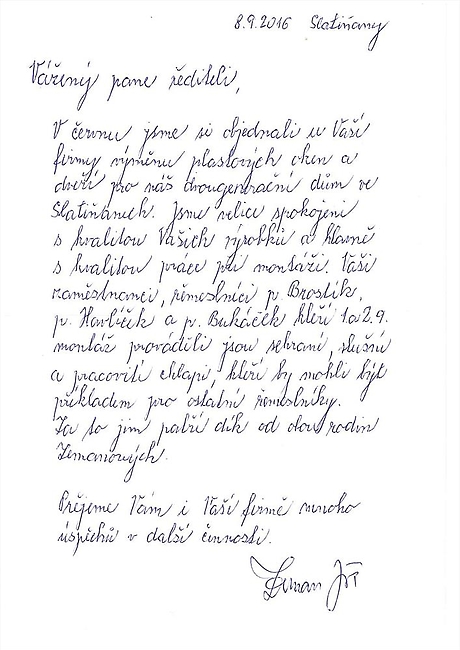 8.9.2016 Slatiňany
Vážený pane řediteli,
V červnu jsme si objednali u Vaší
firmy výměnu plastových oken a
dveří pro náš dvougenerační dům ve
Slatiňanech. Jsme velice spokojeni
s kvalitou Vašich výrobků a hlavně
s kvalitou práce při montáži. Vaši
zaměstnanci, řemeslníci p. Brostík,
p. Havlíček a p. Bukáček kteří 1.a 2.9.
montáž prováděli jsou sehraní, slušní
a pracovití chlapi, kteří by mohli být
příkladem pro ostatní řemeslníky.
Za to jim patří dík od dvou rodin
Zemanových.
Přejeme Vám i Vaší firmě mnoho
úspěchů v další činnosti.
Zeman Jiří